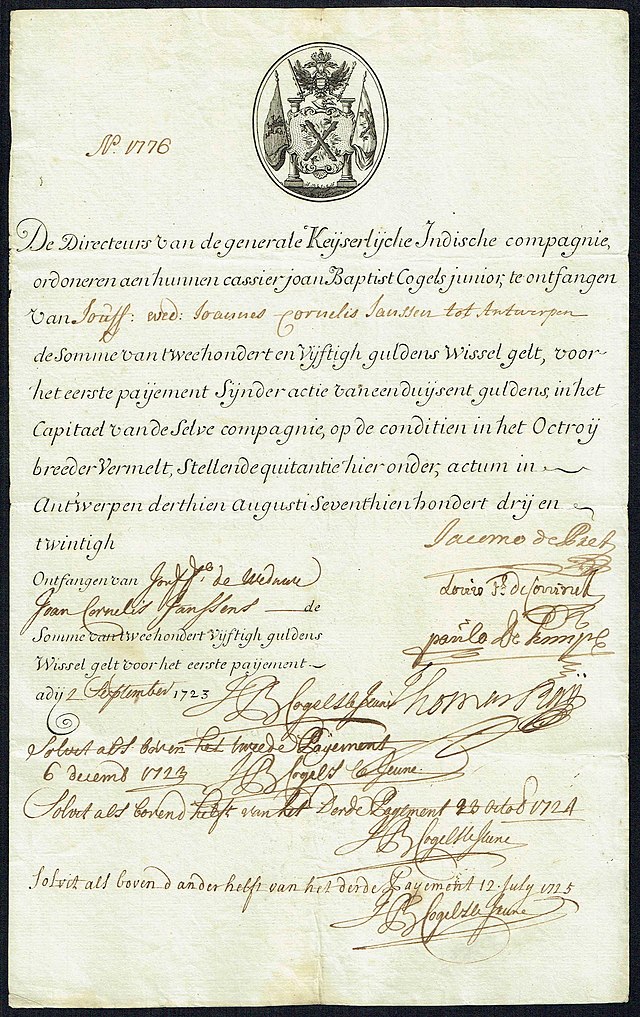 N.º 1776
De Directeurs van de generale Keyserlijche Indische compagnie,
ordoneren aen hunnen cassier joan Baptist Cogels junior, te ontfangen
van Jouff: wed: Joannes Cornelis Janssen tot Antwerpen
de Somme van tweehondert en Vijftigh guldens Wissel gelt, voor-
het eerste paijement Sijnder actie van een duijsent guldens, in het
Capitael van de Selve compagnie, op de conditien in het Octroij
breeder Vermelt, Stellende quitantie hier onder, actum in
Antwerpen derthien Augusti Seventhien hondert drij en
twintigh
Jacomo de Pret
Ontfangen van Jouf. de Weduwe
Joan Cornelis Janssens de
Somme van twee hondert Vijftigh guldens
Wissel gelt voor het eerste paijement
adij 2 September 1723 JB Cogels le Jeune
paulo De Kimpe
Thomas Raÿ
Solvit als boven het tweede Payement
6 decemb 1723 JB Cogels le Jeune
Solvit als boven d helft van het Derde Payement 23 octob 1724
JB Cogels le Jeune
Solvit als boven d ander helft van het derde Payement 12 July 1725
JB Cogels le Jeune